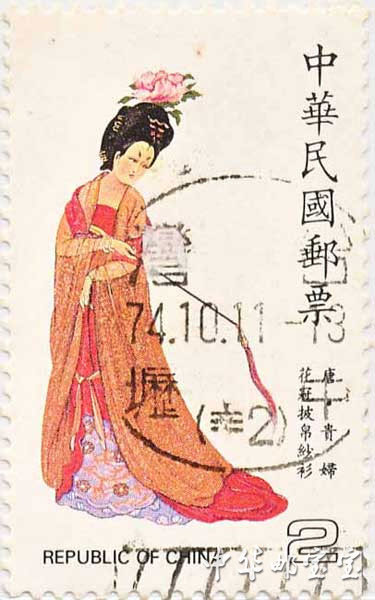 中華民國郵票
唐·貴婦
花粧披帛紗衫
灣
74.10.11-13
壢
REPUBLIC OF CHINA
2
中华邮宝宝